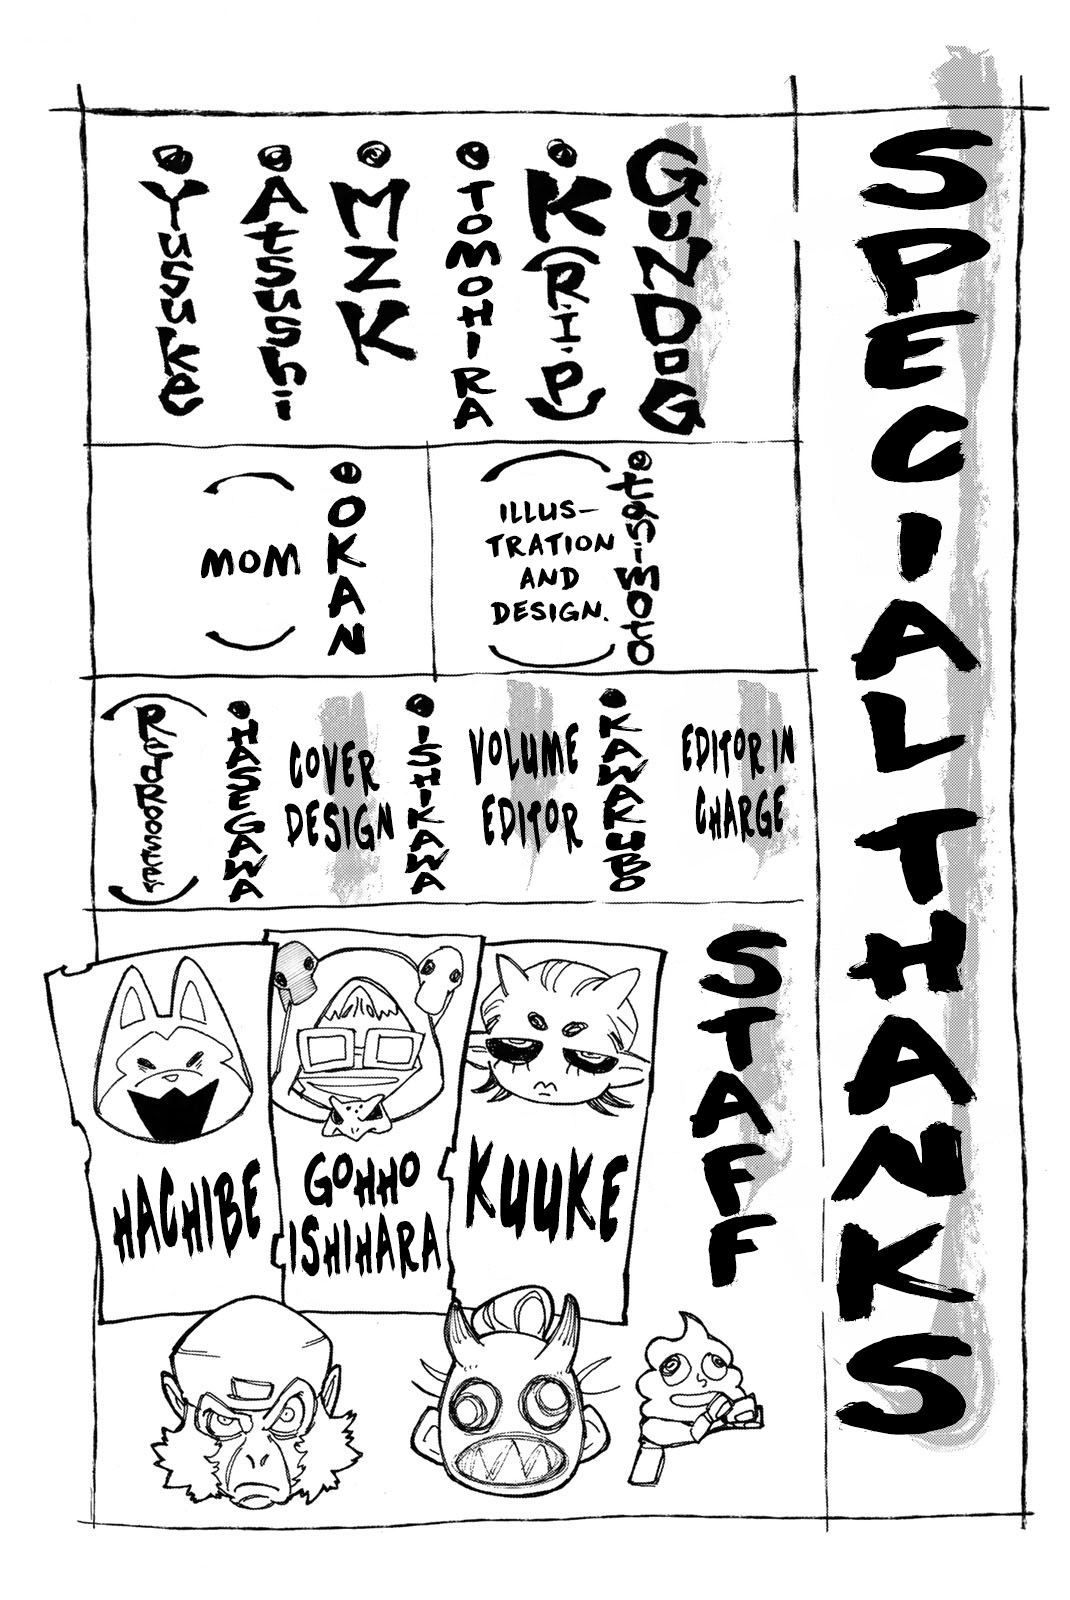 SPECIAL THANKS
GUNDOG
K (R.I.P)
TOMOHIRA
MZK
Atsushi
Yusuke
tanimoto
(ILLUS-
TRATION
AND
DESIGN.)
OKAN
(MOM)
EDITOR IN
CHARGE
KAWAKUBO
VOLUME
EDITOR
ISHIKAWA
COVER
DESIGN
HASEGAWA
STAFF
KUUKE
GOHHO
ISHIHARA
HACHIBE